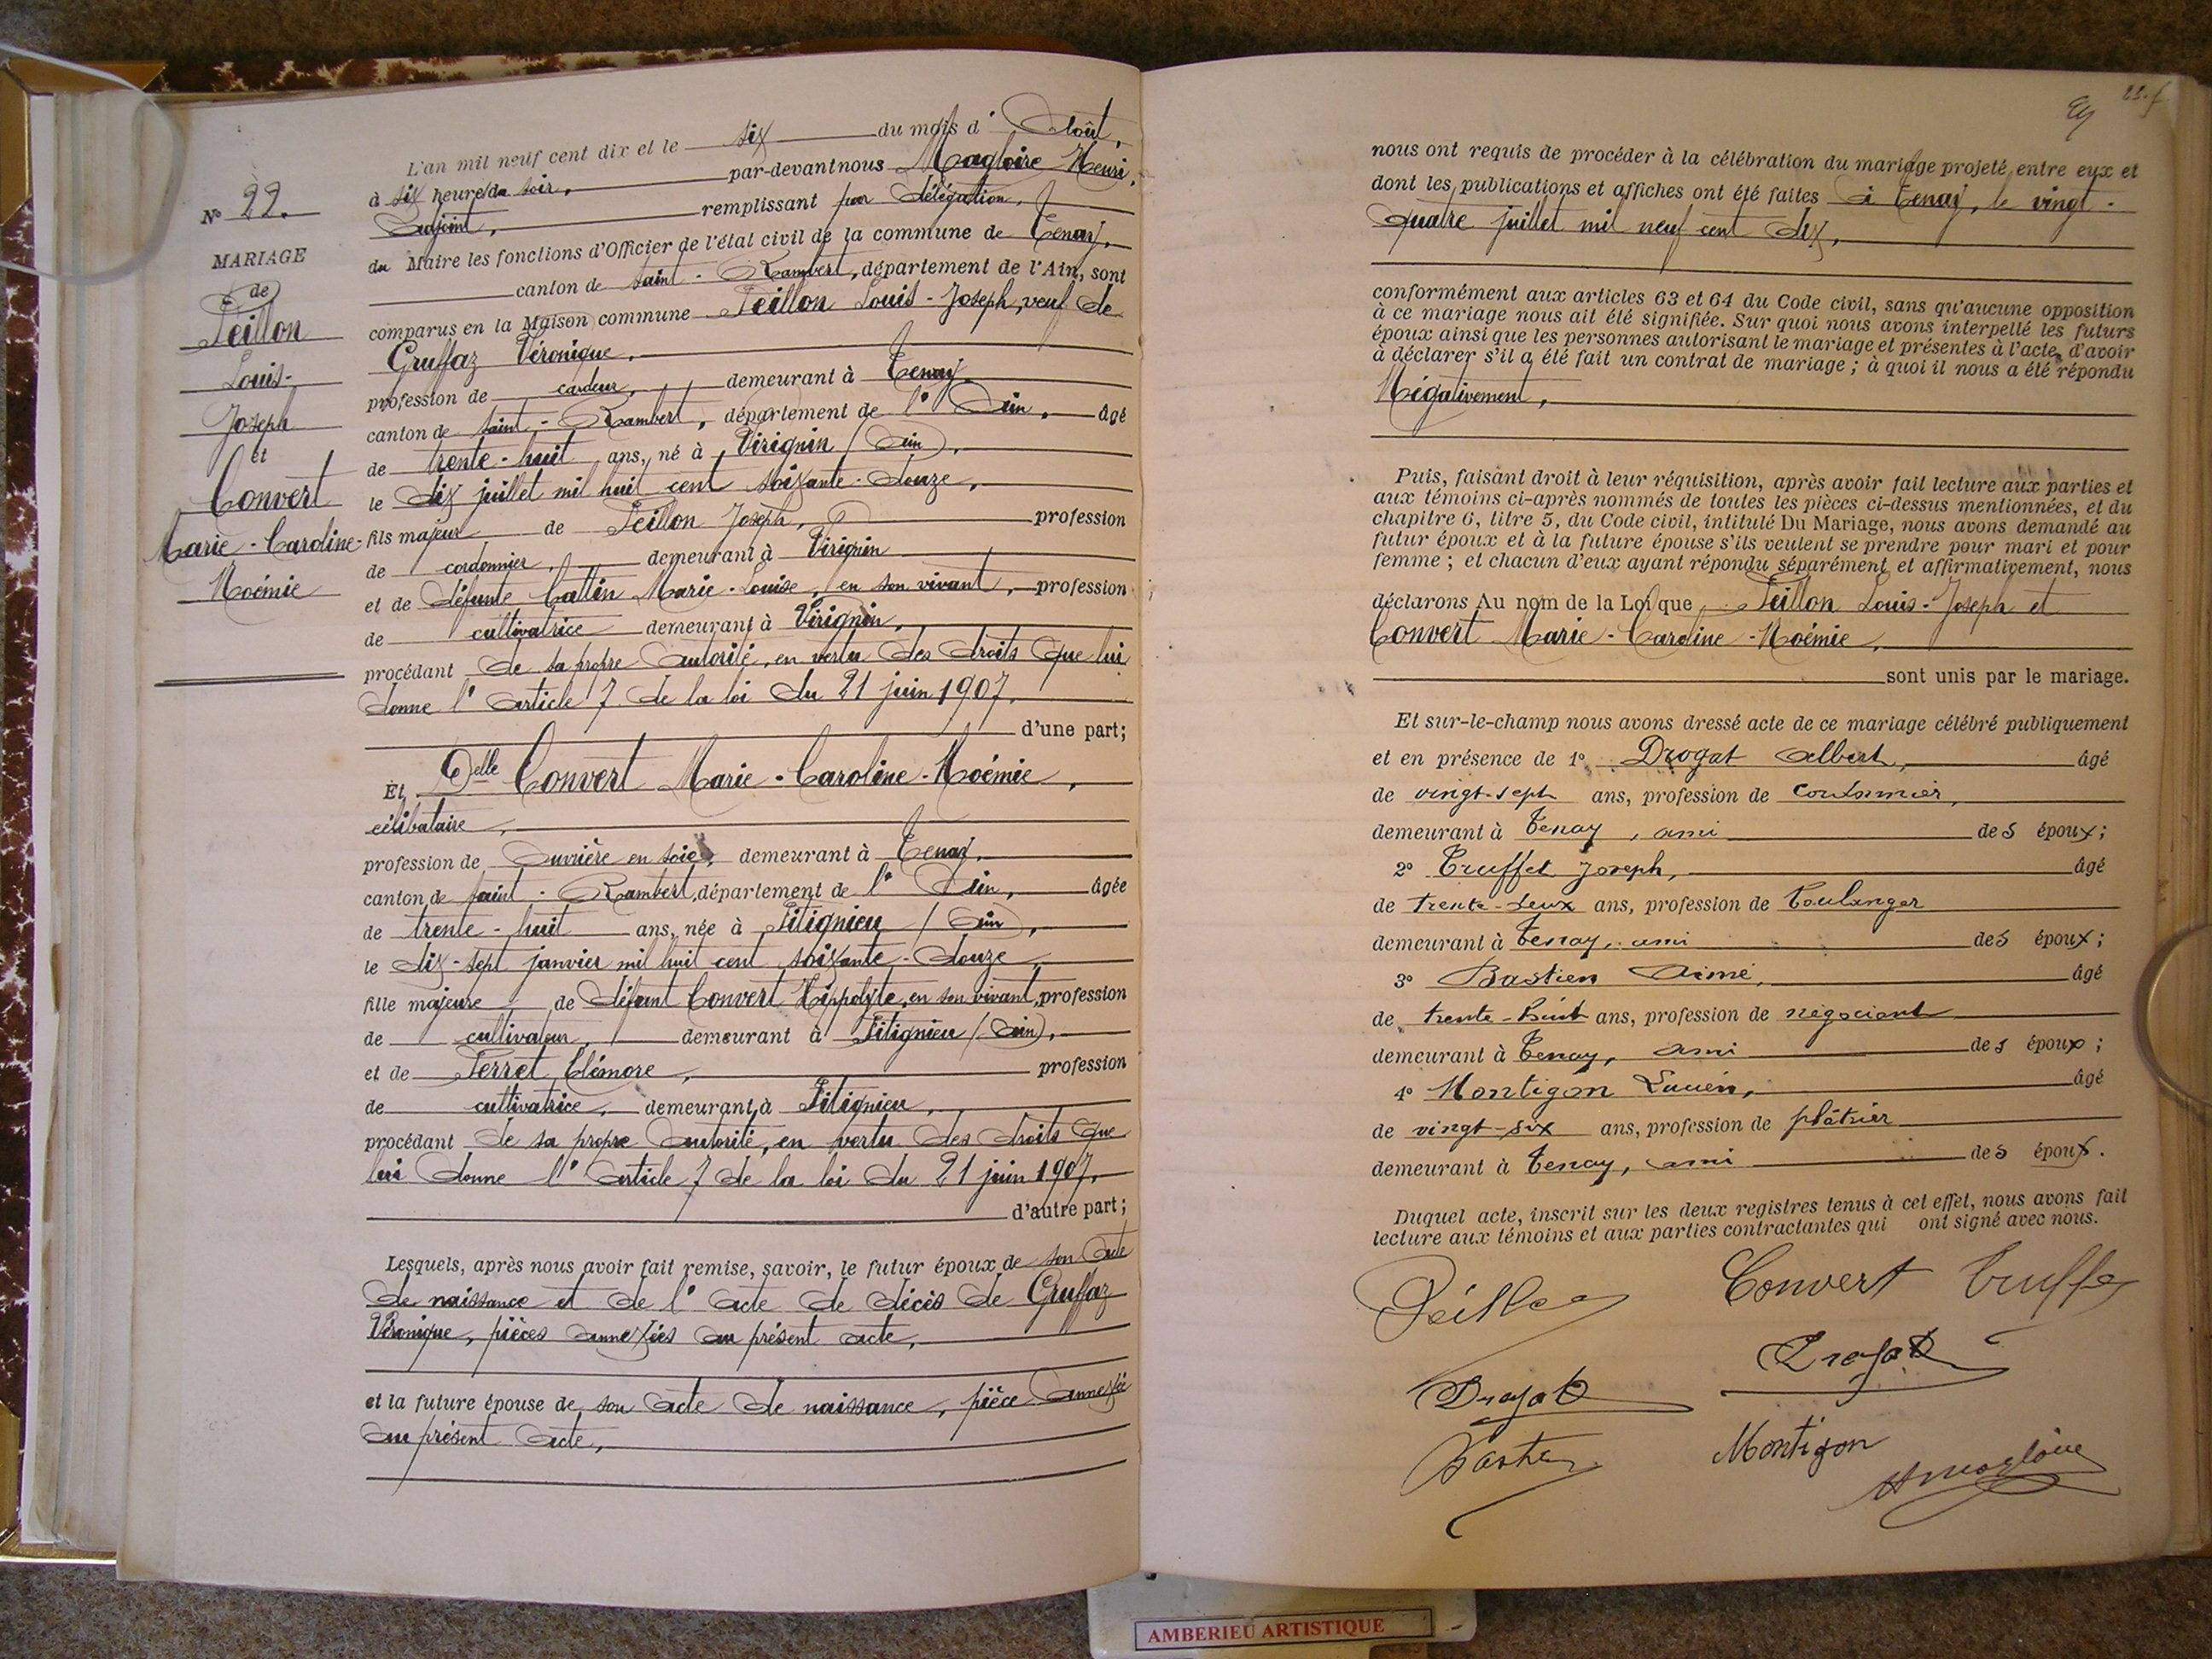 L'an mil neuf cent dix et le six du mois d' Août,
à six heures du soir, par-devant nous Magloire Henri,
Adjoint, remplissant par délégation,
du Maire les fonctions d'Officier de l'état civil de la commune de Tenay,
canton de saint-Rambert, département de l'Ain, sont
comparus en la Maison commune Peillon Louis-Joseph, veuf de
Gruffaz Véronique,
profession de cardeur, demeurant à Tenay,
canton de saint-Rambert, département de l' Ain, âgé
de trente-huit ans, né à Virignin (Ain),
le dix juillet mil huit cent soixante-douze,
fils majeur de Peillon Joseph, profession
de cordonnier, demeurant à Virignin
et de défunte Cattin Marie-Louise, en son vivant, profession
de cultivatrice demeurant à Virignin,
procédant de sa propre autorité, en vertu des droits que lui
donne l' article 7 de la loi du 21 juin 1907,
d'une part;
Et Delle Convert Marie-Caroline-Noémie,
célibataire,
profession de Ouvrière en soie, demeurant à Tenay,
canton de saint-Rambert, département de l' Ain, âgée
de trente-huit ans, née à Pitignieu (Ain),
le dix-sept janvier mil huit cent soixante-douze,
fille majeure de défunt Convert Hippolyte, en son vivant, profession
de cultivateur, demeurant à Pitignieu (Ain),
et de Perret Clémore, profession
de cultivatrice, demeurant à Pitignieu,
procédant de sa propre autorité, en vertu des droits que
lui donne l' article 7 de la loi du 21 juin 1907,
d'autre part;
Lesquels, après nous avoir fait remise, savoir, le futur époux de son acte
de naissance et de l' acte de décès de Gruffaz
Véronique, pièces annexées au présent acte,
et la future épouse de son acte de naissance, pièce annexée
au présent acte,
N° 22.
MARIAGE
de
Peillon
Louis-
Joseph
et
Convert
Marie-Caroline-
Noémie
nous ont requis de procéder à la célébration du mariage projeté entre eux et
dont les publications et affiches ont été faites à Tenay, le vingt-
quatre juillet mil neuf cent dix,
conformément aux articles 63 et 64 du Code civil, sans qu'aucune opposition
à ce mariage nous ait été signifiée. Sur quoi nous avons interpellé les futurs
époux ainsi que les personnes autorisant le mariage et présentes à l'acte, d'avoir
à déclarer s'il a été fait un contrat de mariage ; à quoi il nous a été répondu
Négativement,
Puis, faisant droit à leur réquisition, après avoir fait lecture aux parties et
aux témoins ci-après nommés de toutes les pièces ci-dessus mentionnées, et du
chapitre 6, titre 5, du Code civil, intitulé Du Mariage, nous avons demandé au
futur époux et à la future épouse s'ils veulent se prendre pour mari et pour
femme ; et chacun d'eux ayant répondu séparément et affirmativement, nous
déclarons Au nom de la Loi que Peillon Louis-Joseph et
Convert Marie-Caroline-Noémie,
sont unis par le mariage.
Et sur-le-champ nous avons dressé acte de ce mariage célébré publiquement
et en présence de 1° Drogat Albert, âgé
de vingt-sept ans, profession de
demeurant à Tenay, ami des époux;
2° Truffet Joseph, âgé
de trente-deux ans, profession de Boulanger
demeurant à Tenay, ami des époux;
3° Bastien Aimé, âgé
de trente-huit ans, profession de négociant
demeurant à Tenay, ami des époux;
4° Montigon Lucien, âgé
de vingt-six ans, profession de plâtrier
demeurant à Tenay, ami des époux.
Duquel acte, inscrit sur les deux registres tenus à cet effet, nous avons fait
lecture aux témoins et aux parties contractantes qui ont signé avec nous.
Peillon Convert Truffet
Drogat
Drogat
Montigon
HMagloire
AMBERIEU ARTISTIQUE